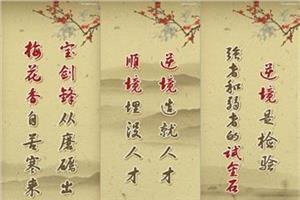 宝剑锋从磨砺出
梅花香自苦寒来
逆境造就人才
顺境埋没人才
逆境是检验
强者和弱者的试金石